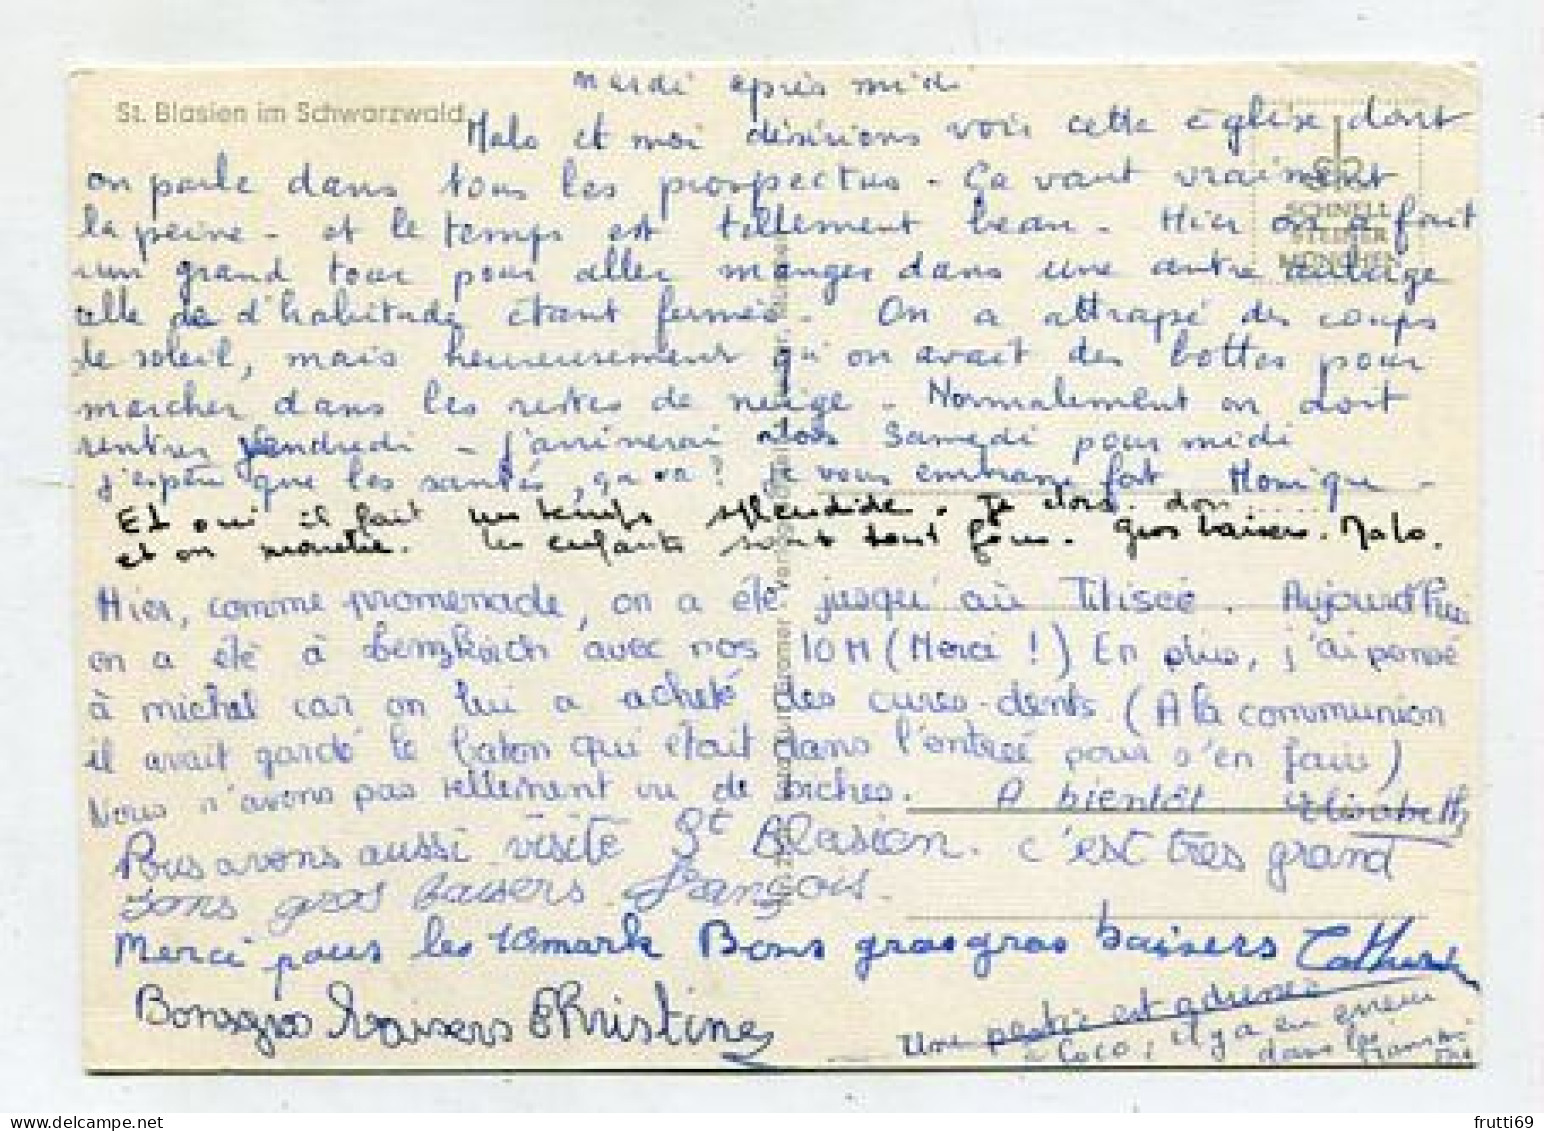 mardi après midi
St. Blasien im Schwarzwald
Malo et moi désirions voir cette église dont
on parle dans tous les prospectus - Ça vaut vraiment
la peine - et le temps est tellement beau - Hier on a fait
SCHNELL
STEINER
MÜNCHEN
un grand tour pour aller manger dans une autre auberge
celle de d'habitude étant fermée - On a attrapé des coups
de soleil, mais heureusement qu'on avait des bottes pour
marcher dans les restes de neige - Normalement on doit
rentrer vendredi - j'arriverai alors samedi pour midi
j'espère que les santés, ça va ? Je vous embrasse fort Monique -
Et oui il fait un temps splendide. Je dors. dors
et on marche. Les enfants sont tout fous. gros baisers. Malo.
Hier, comme promenade, on a été jusqu'au Titisée. Aujourd'hui
on a été à Lenzkirch avec nos 10M (Merci !) En plus, j'ai pensé
à michel car on lui a acheté des cures-dents (A la communion
il avait gardé le baton qui était dans l'entrée pour s'en faire)
Nous n'avons pas tellement vu de biches. A bientôt Elisabeth
Nous avons aussi visité St Blasien. c'est tres grand
Bons gros baisers. François.
Merci pour les 10mark Bons grosgros baisers Catherine
Bonsgros baisers Christine
Une partie est adressée
à Coco, il y a eu erreur
dans la
frutti69